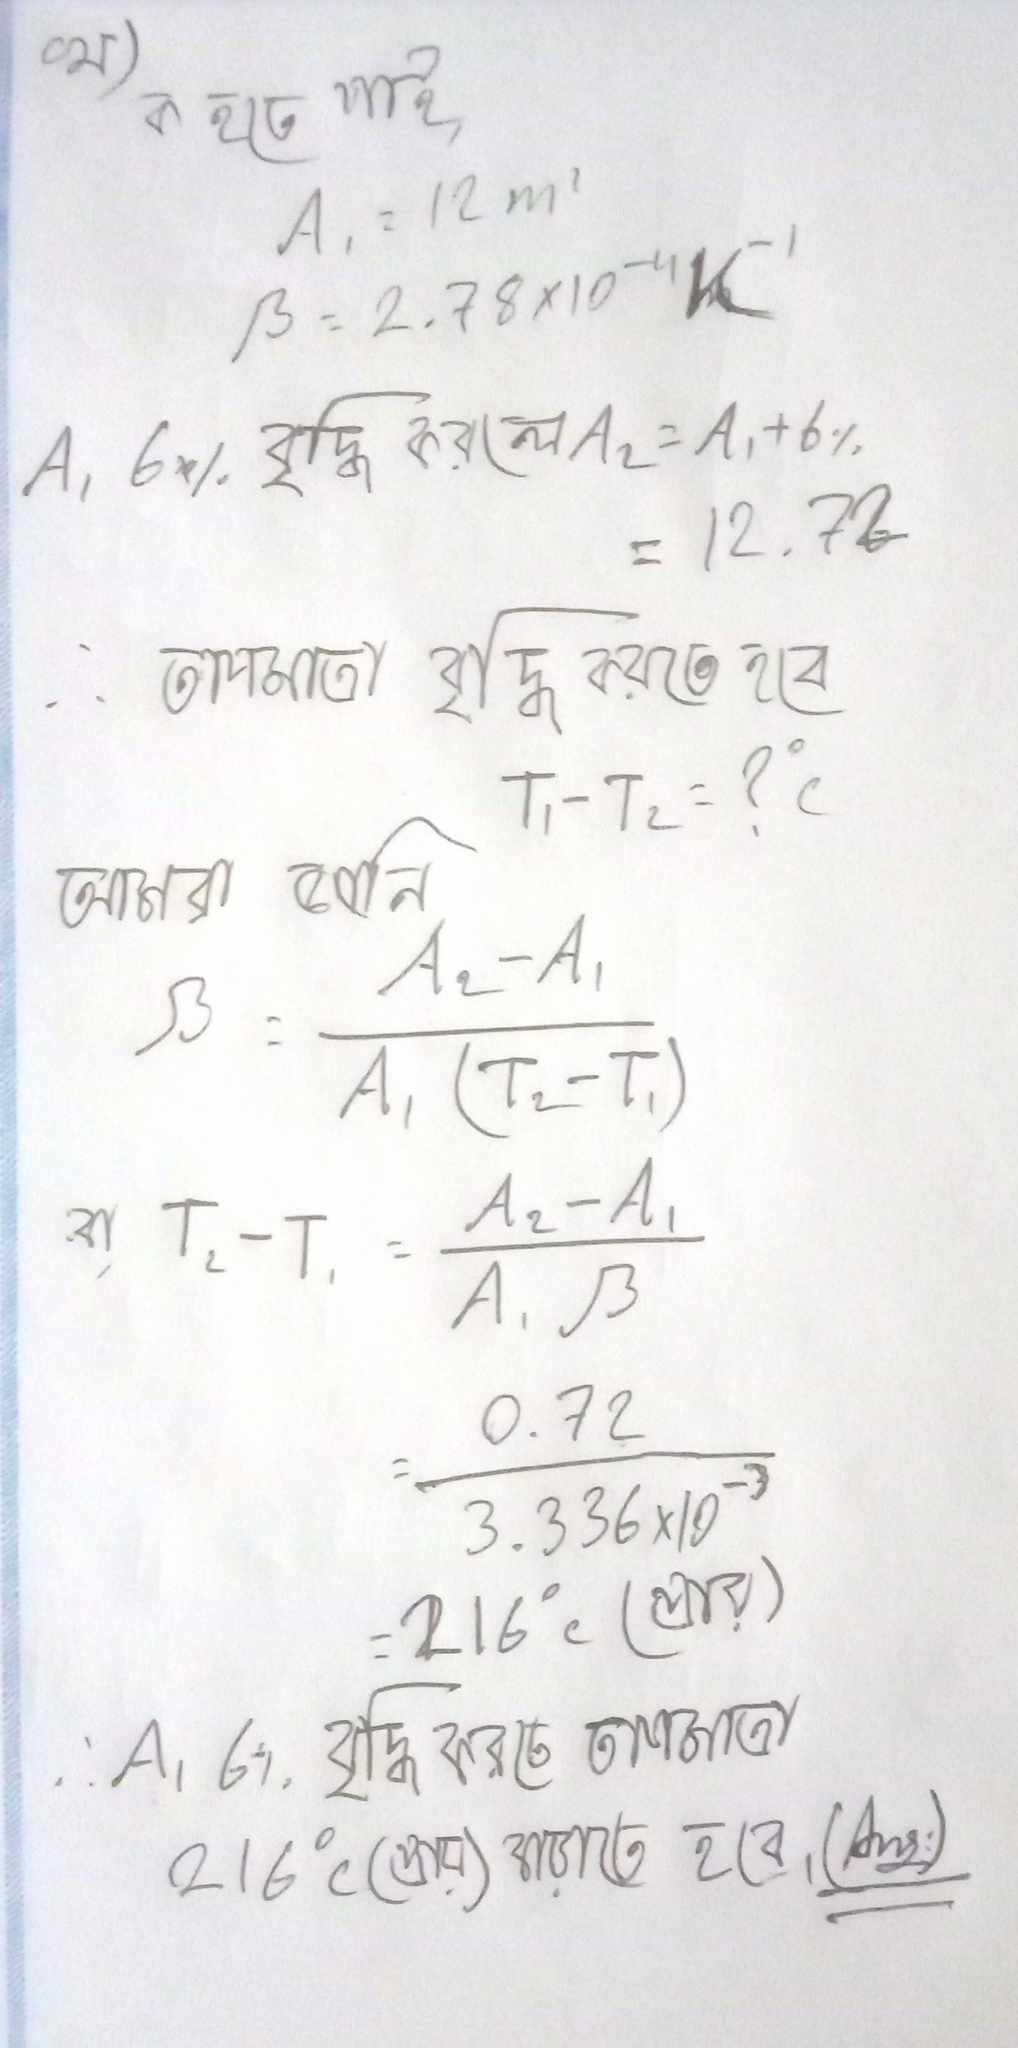 খ)
ক হতে পাই,
A₁ = 12 m²
β = 2.78×10⁻⁴ K⁻¹
A₁ 6% বৃদ্ধি করলে A₂ = A₁+6%
= 12.72
∴ তাপমাত্রা বৃদ্ধি করতে হবে
T₁-T₂ = ?°c
আমরা জানি
β = A₂-A₁ / A₁ (T₂-T₁)
বা, T₂-T₁ = A₂-A₁ / A₁ β
= 0.72 / 3.336×10⁻³
= 216°c (প্রায়)
∴ A₁ 6% বৃদ্ধি করতে তাপমাত্রা
216°c (প্রায়) বাড়াতে হবে, (Ans:)